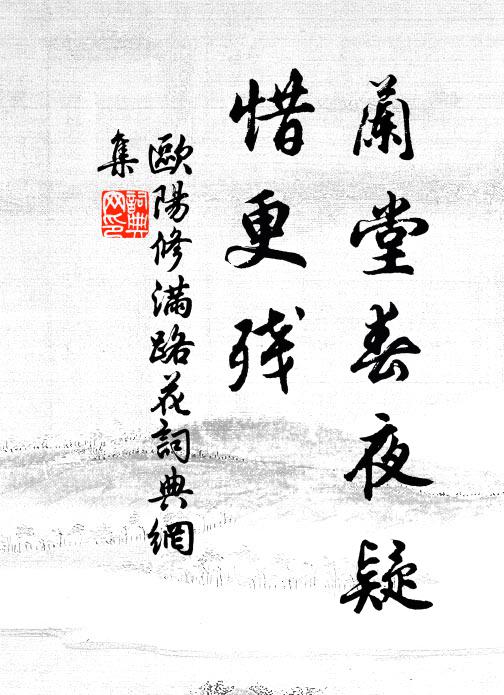 蘭堂春夜疑
惜更殘
歐陽修滿路花詞典網
集
詞典
网印